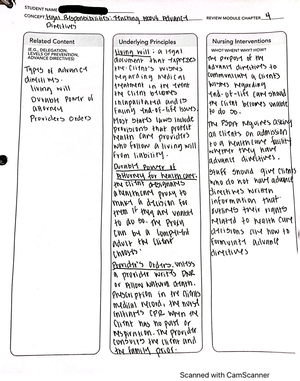 STUDENT NAME
CONCEPT Legal Responsibilities: Teaching About Advance
Directives
REVIEW MODULE CHAPTER 4
Related Content
(E.G., DELEGATION,
LEVELS OF PREVENTION,
ADVANCE DIRECTIVES)
Types of advance
directives
living will
Durable Power of
Attorney
Providers Orders
Underlying Principles
Living will: a legal
document that expresses
the clients wishes
regarding medical
treatment in the event
the client becomes
incapacitated and is
facing end-of-life issues
Most states laws include
provisions that protect
health care providers
who follow a living will
from liability.
Durable Power of
Attorney for healthcare:
the client designates
a healthcare proxy to
make a decision for
them if they are unable
to do so. the proxy
can be a competent
adult the client
chooses.
Provider's Orders: unless
a provider writes DNR
or Allow natural death
prescription in the clients
medical record, the nurse
initiates CPR when the
client has no pulse or
respiration. The provider
consults the client and
the family prior.
Nursing Interventions
WHO? WHEN? WHY? HOW?
the purpose of the
advance directives to
communicate a clients
wishes regarding
end-of-life care should
the client becomes unable
to do so.
The PSDA requires asking
all clients on admission
to a healthcare facility
whether they have
advance directives.
Staff should give clients
who do not have advance
directives written
information that
outlines their rights
related to health care
decisions and how to
formulate advance
directives
Scanned with CamScanner